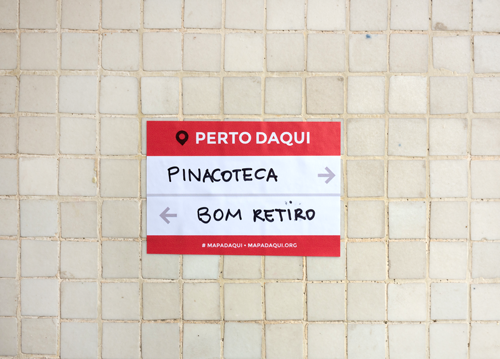 PERTO DAQUI
PINACOTECA →
← BOM RETIRO
# MAPADAQUI • MAPADAQUI.ORG